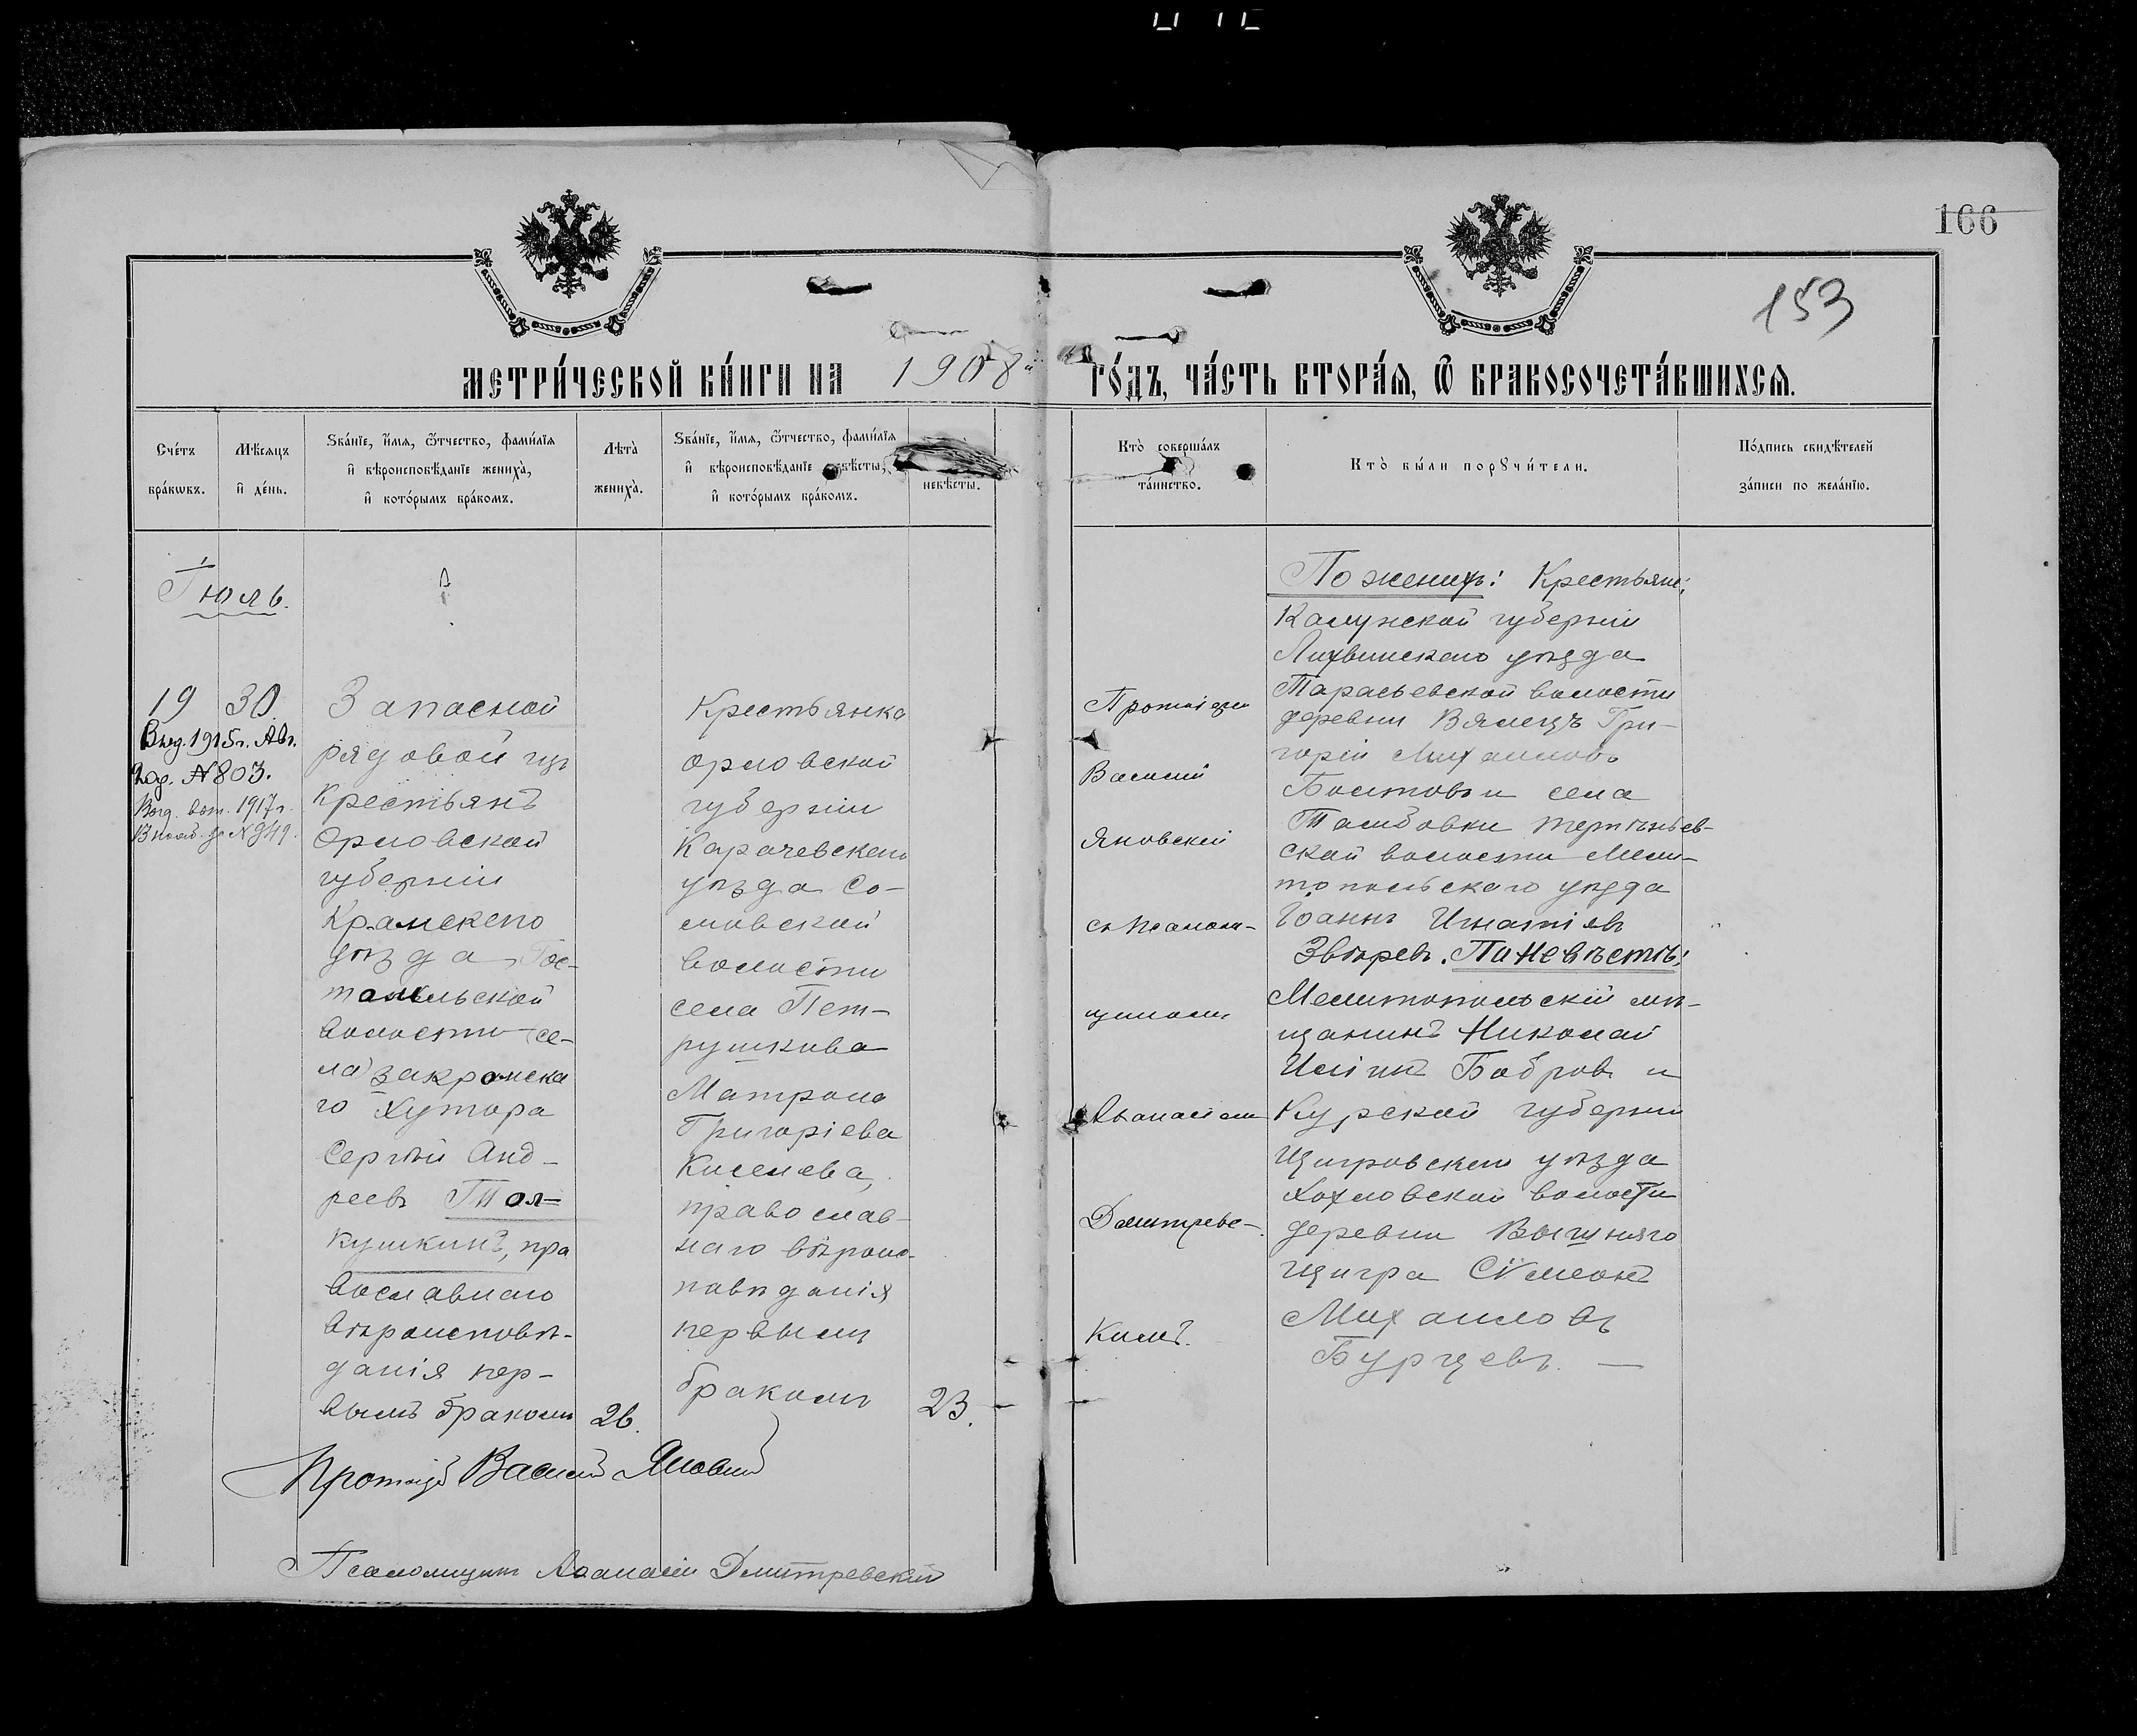 166
153
МЕТРИ́ЧЕСКОЙ КНИ́ГИ НА 1908й ГО́ДЪ, ЧА́СТЬ ВТОРА́Я, Ѿ БРАКОСОЧЕТА́ВШИХСЯ.
Сче́тъ
бра́кѡвъ.
Мѣ́сяцъ
и҆ де́нь.
Ѕва́нїе, и҆́мя, ѻ҆́тчество, фами́лїя
и҆ вѣроисповѣ́данїе жениха̀,
и҆ кото́рымъ бра́комъ.
Лѣта̀
жениха̀.
Ѕва́нїе, и҆́мя, ѻ҆́тчество, фами́лїя
и҆ вѣроисповѣ́данїе невѣ́сты,
и҆ кото́рымъ бра́комъ.
невѣ́сты.
Кто̀ соверша́лъ
та́инство.
Кто̀ бы́ли порꙋчи́тели.
По́дпись свидѣ́телей
за́писи по жела́нїю.
Іюль.
19
30
Выд. 1915г. Авг.
под. № 803.
1917 г.
Запасной
рядовой изъ
крестьянъ
Орловской
губерніи
Кромскаго
уѣзда, Гос-
томльской
волости се-
ла Закромска
го Хутора
Сергѣй Анд-
реевъ Тол-
кушкинъ, пра
вославнаго
вѣроисповѣ-
данія пер-
вымъ бракомъ
26.
Крестьянка
Орловской
губерніи
Карачевскаго
уѣзда Со-
мовской
волости
села Пет-
рушкова
Матрона
Григоріева
Киселева,
православ-
наго вѣроис-
повѣданія
первымъ
бракомъ
23.
Протоіерей
Василій
Яновскій
съ псаломщ-
щикомъ
Аѳанасіемъ
Дмитревс-
кимъ.
По женихѣ: Крестьяне:
Калужской губерніи
Лихвинскаго уѣзда
Тарасьевской волости
деревни Вялецъ Гри-
горій Михаиловъ
села
Тамбовки Терпѣньев-
ской волости Мели-
топольскаго уѣзда
Іоаннъ Игнатіевъ
Звѣревъ. По невѣстѣ:
Мелитопольскій мѣ-
щанинъ Николай
Иліинъ Бобровъ и
Курской губерніи
Щигровскаго уѣзда
Хохловской волости
деревни Вышняго
Щигра Сѵмеонъ
Михаиловъ
Бурцевъ. —
Протоіер Василій Яновскій
Псаломщикъ Аѳанасій Дмитревскій